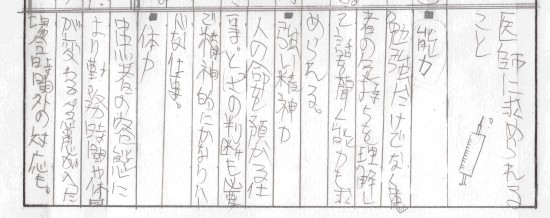 医師に求められる
こと
■能力
勉強だけでなく患
者の気持ちを理解し
て話を聞く能力も求
められる。
■強い精神力
人の命を預かる仕
事。とさの判断も必要
で精神的にかなりハ
ードな仕事。
■体力
患者の容態に
より勤務時間や休日
が変わる。急患が入った
場合時間外の対応も。